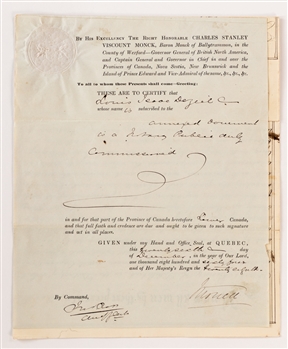 BY HIS EXCELLENCY THE RIGHT HONORABLE CHARLES STANLEY
VISCOUNT MONCK, Baron Monck of Ballytrammon, in the
County of Wexford—Governor General of British North America,
and Captain General and Governor in Chief in and over
the Provinces of Canada, Nova Scotia, New Brunswick and the
Island of Prince Edward and Vice-Admiral of the same, &c., &c., &c.
To all to whom these Presents shall come—Greeting:
THESE ARE TO CERTIFY that
Louis Isaac
whose name is subscribed to the
annexed Document
is a Notary Public duly
Commissioned
in and for that part of the Province of Canada heretofore Lower Canada,
and that full faith and credence are due and ought to be given to such
signature and act in all places.
GIVEN under my Hand and Office, Seal, at QUEBEC,
this twenty sixth
day
of December, in the year of Our Lord,
one thousand eight hundred and sixty four
and of Her Majesty's Reign the twenty eighth.
By Command,
Monck